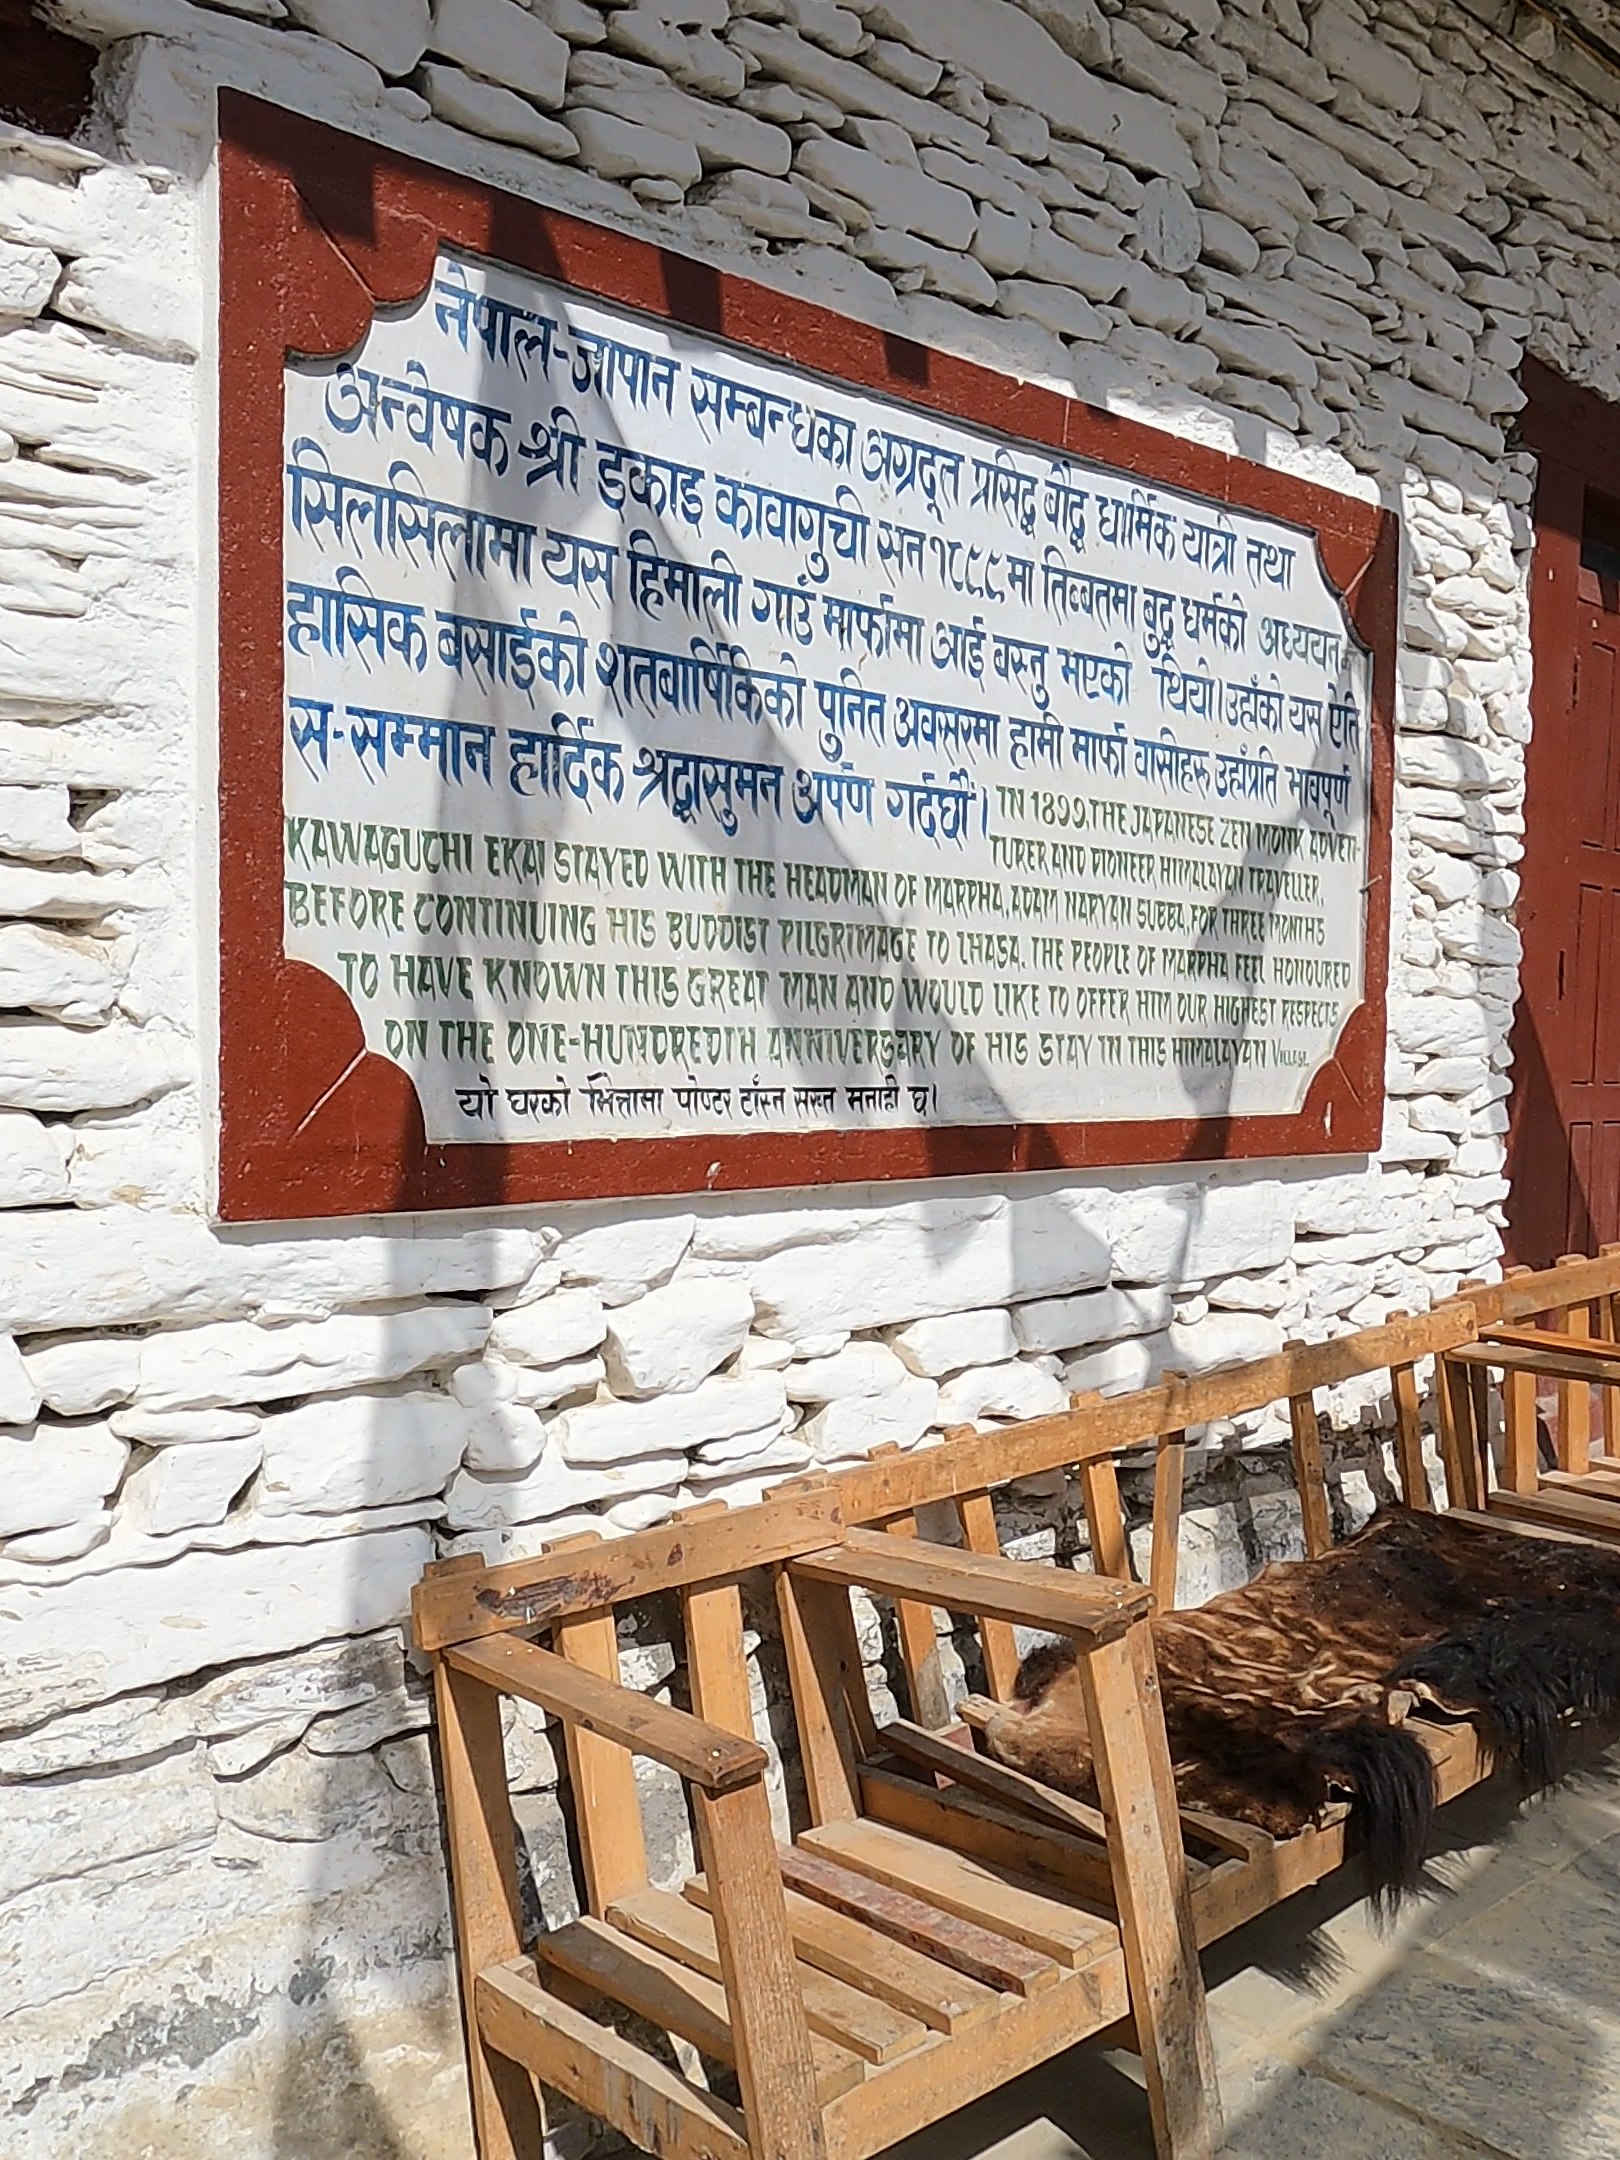 नेपाल-जापान सम्बन्धका अग्रदूत प्रसिद्ध बौद्ध धार्मिक यात्री तथा
अन्वेषक श्री इकाइ कावागुची सन १८९९मा तिब्बतमा बुद्ध धर्मको अध्ययन
सिलसिलामा यस हिमाली गाउँ मार्फामा आई बस्नु भएको थियो। उहाँको यस ऐति
हासिक बसाईको शतवार्षिकिको पुनित अवसरमा हामी मार्फा वासीहरु उहाँप्रति भावपूर्ण
स-सम्मान हार्दिक श्रद्धासुमन अर्पण गर्दछौं।
IN 1899, THE JAPANESE ZEN MONK ADVEN-
TURER AND PIONEER HIMALAYAN TRAVELLER,
KAWAGUCHI EKAI STAYED WITH THE HEADMAN OF MARPHA, ADAM NARYAN SUBBA, FOR THREE MONTHS
BEFORE CONTINUING HIS BUDDIST PILGRIMAGE TO LHASA. THE PEOPLE OF MARPHA FEEL HONOURED
TO HAVE KNOWN THIS GREAT MAN AND WOULD LIKE TO OFFER HIM OUR HIGHEST RESPECTS
ON THE ONE-HUNDREDTH ANNIVERSARY OF HIS STAY IN THIS HIMALAYAN VILLAGE.
यो घरको भित्तामा पोष्टर टाँस्न सख्त मनाही छ।